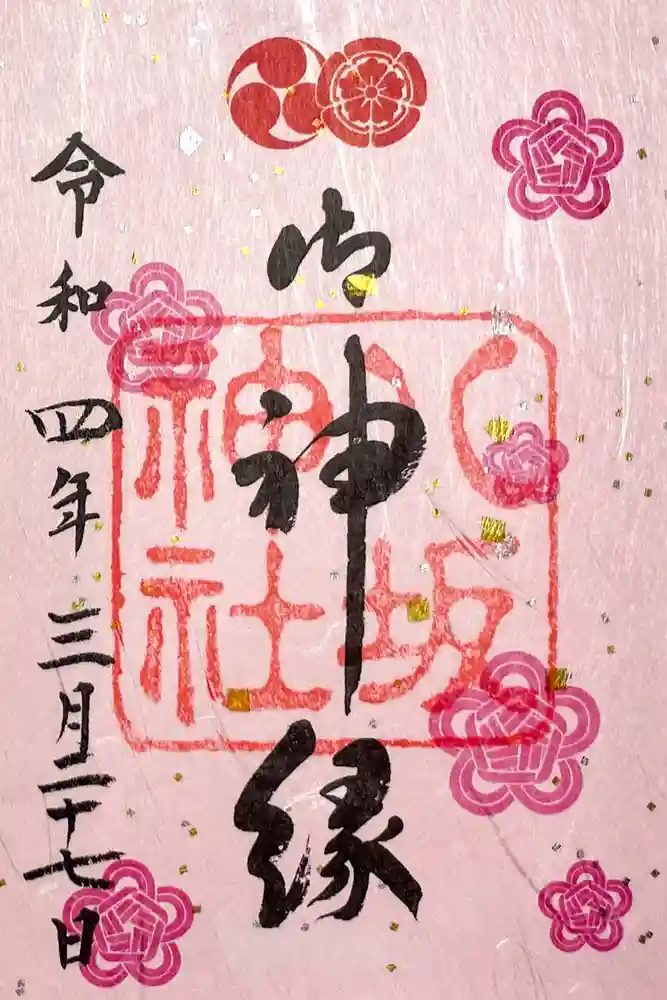 御神縁
八坂
神社
令和四年三月二十七日